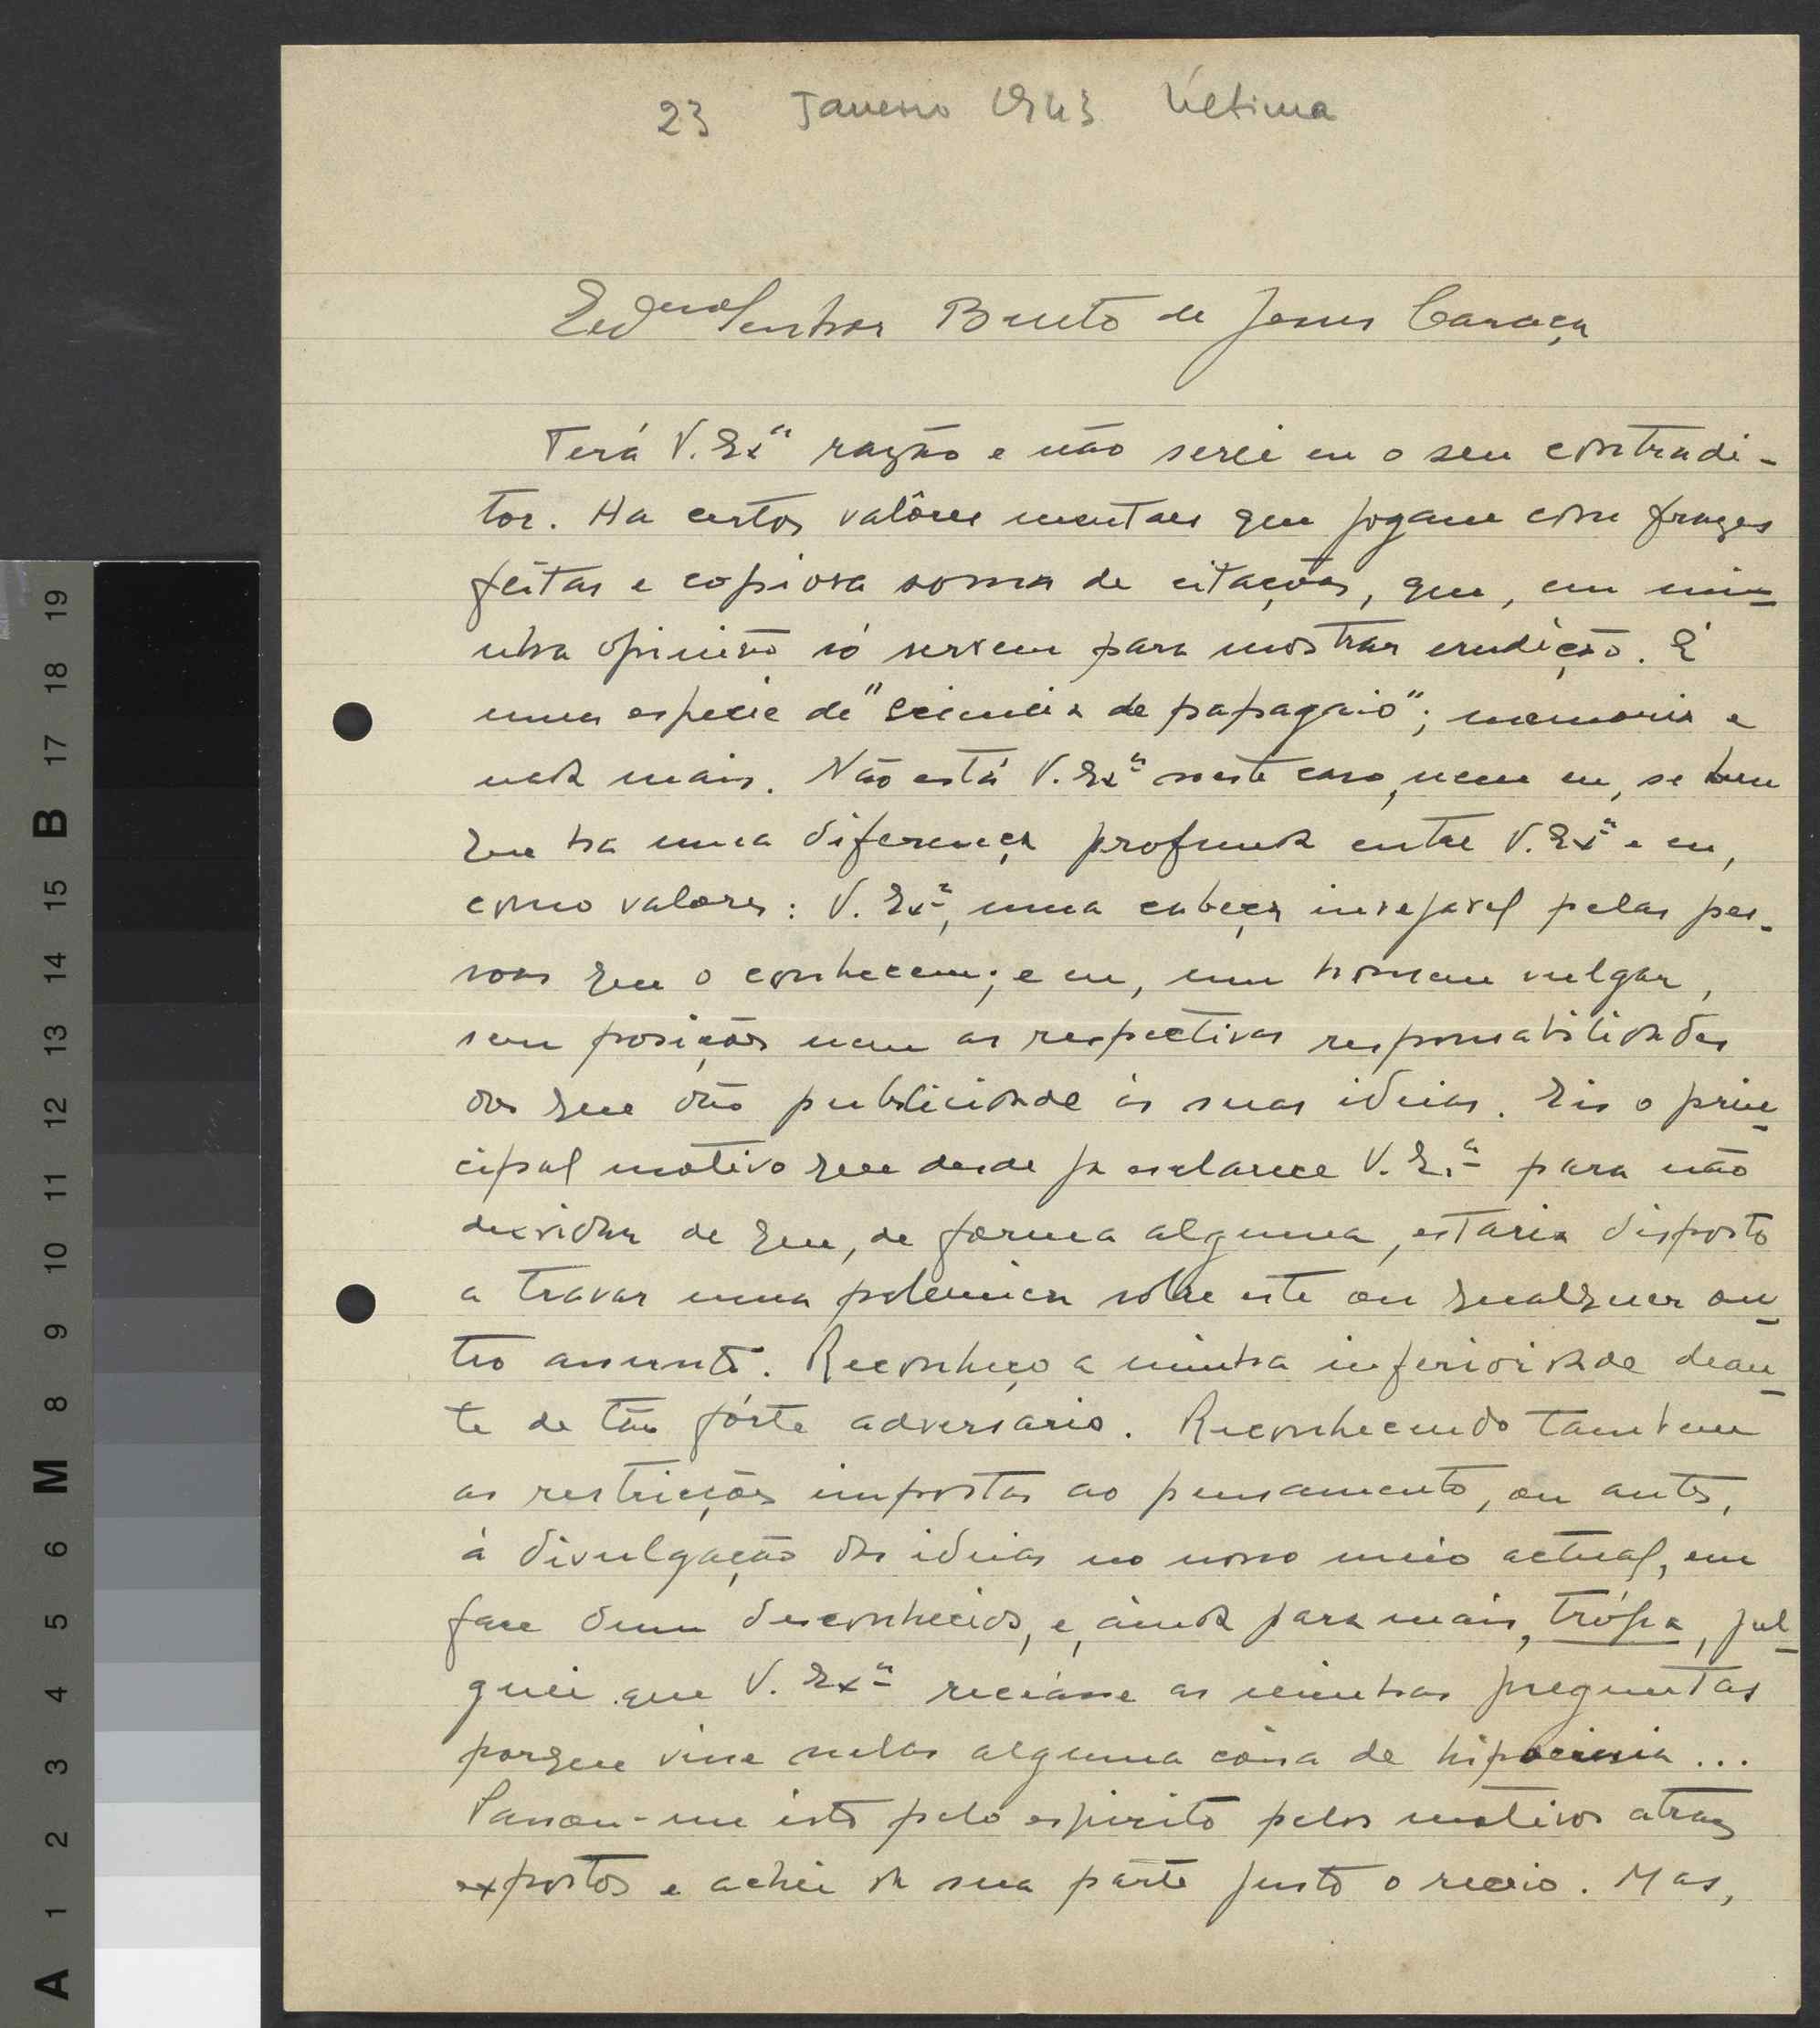 23 Janeiro 1943 Última
Exº Senhor Bento de Jesus Caraça
Terá V. Exª razão e não serei eu o seu contradi-
tor. Ha certos valôres mentaes que jogam com frazes
feitas e copiosa soma de citações, que, em mi-
nha opinião só servem para mostrar erudição. É
uma especie de "sciencia de papagaio"; memoria e
nada mais. Não está V. Exª neste caso, nem eu, se bem
que ha uma diferença profunda entre V. Exª e eu,
como valores: V. Exª, uma cabeça invejavel pelas pes-
soas que o conhecem; e eu, um homem vulgar,
sem posições nem as respectivas responsabilidades
dos que dão publicidade ás suas ideias. Eis o prin-
cipal motivo que desde ja esclarece V. Exª para não
duvidar de que, de forma alguma, estaria disposto
a travar uma polemica sobre este ou qualquer ou-
tro assunto. Reconheço a minha inferioridade dean-
te de tão fórte adversario. Reconhecendo tambem
as restricções impostas ao pensamento, ou antes,
á divulgação das ideias no nosso meio actual, em
face dum desconhecido, e, ainda para mais, trópa, jul-
guei que V. Exª receásse as minhas preguntas
porque visse nelas alguma coisa de hipocrisia...
Passou-me isto pelo espirito pelos motivos atraz
expostos e achei da sua parte justo o receio. Mas,